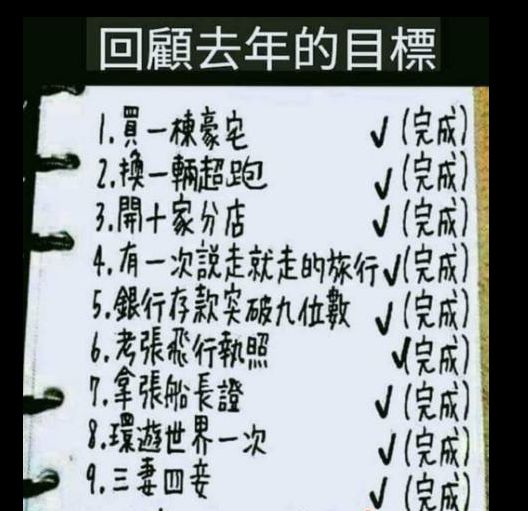 回顧去年的目標
1.買一棟豪宅 ✓(完成)
2.換一輛超跑 ✓(完成)
3.開十家分店 ✓(完成)
4.有一次說走就走的旅行✓(完成)
5.銀行存款突破九位數 ✓(完成)
6.考張飛行執照 ✓(完成)
7.拿張船長證 ✓(完成)
8.環遊世界一次 ✓(完成)
9.三妻四妾 ✓(完成)